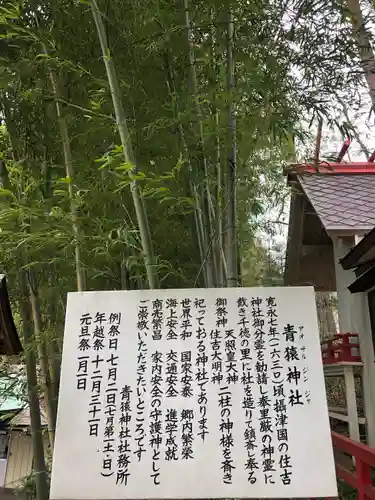 青猿神社
アオザルジンジャ
寛永七年(一六三〇)頃摂津国の住吉
神社御分霊を勧請し泰里厳の神霊に
裁き千歳の里に社を造りて鎮斎し奉る
御祭神 天照皇大神
住吉大明神 二柱の神様を斎き
祀っておりる神社であります
世界平和 国家安泰 郷内繁栄
海上安全 交通安全 進学成就
商売繁昌 家内安全の守護神として
ご崇敬いただきたいところです。
青猿神社社務所
例祭日 七月二日(七月第一土日)
年越祭 十二月三十一日
元旦祭 一月一日